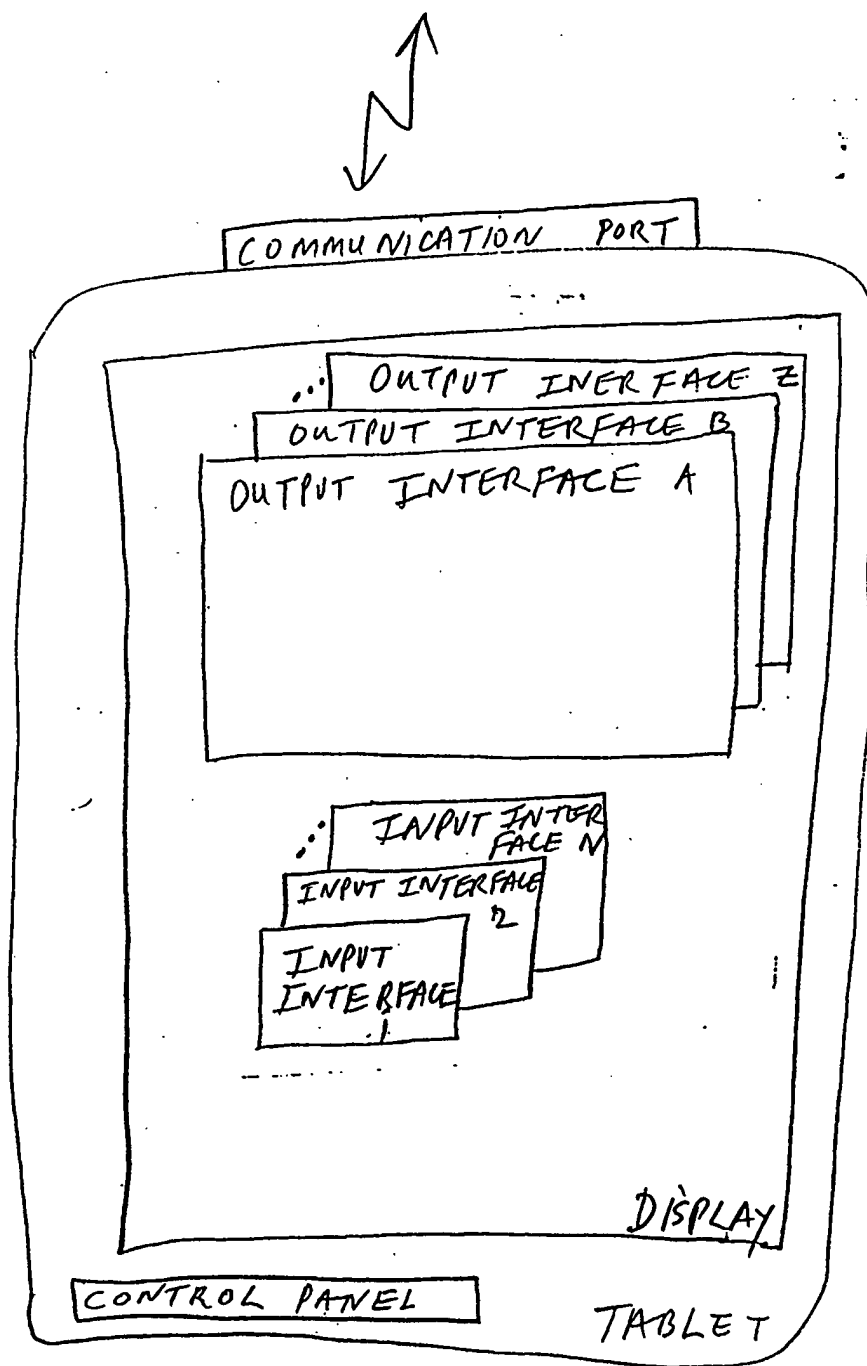 COMMUNICATION PORT
OUTPUT INERFACE Z
OUTPUT INTERFACE B
OUTPUT INTERFACE A
INPUT INTER
FACE N
INPUT INTERFACE
2
INPUT
INTERFACE
1
DISPLAY
CONTROL PANEL
TABLET